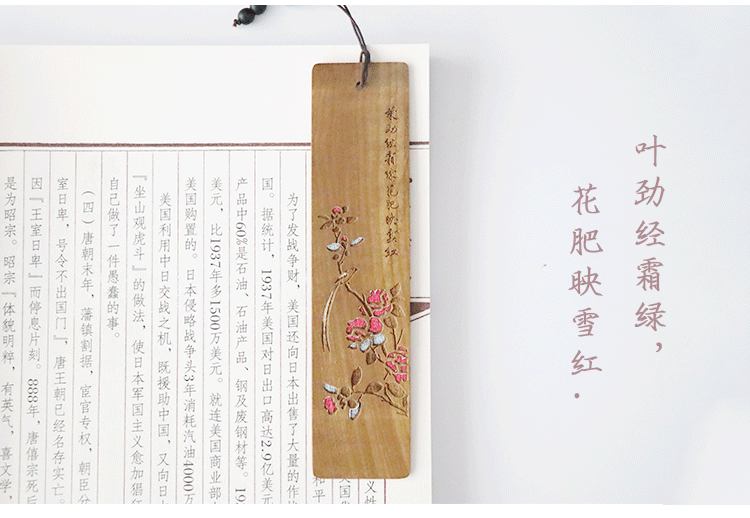 叶劲经霜绿，
花肥映雪红.
葉劲经霜绿花肥映雪红
义性
和平
为了发战争财，美国还向日本出售了大量的作
国。据统计，1937年美国对日出口高达2.9亿美
产品中60%是石油、石油产品、钢及废钢材等。19
美元，比1937年多1500万美元。就连美国商业部
美国购置的。日本侵略战争头3年消耗汽油4000万
美国利用中日交战之机，既援助中国，又向日
『坐山观虎斗』的做法，使日本军国主义愈加猖
自己做了一件愚蠢的事。
（四）唐朝末年，藩镇割据，宦官专权，朝臣分
室日卑，号令不出国门』，唐王朝已经名存实亡。
因『王室日卑』而停息片刻。888年，唐僖宗死后
是为昭宗。昭宗『体貌明粹，有英气，喜文学，